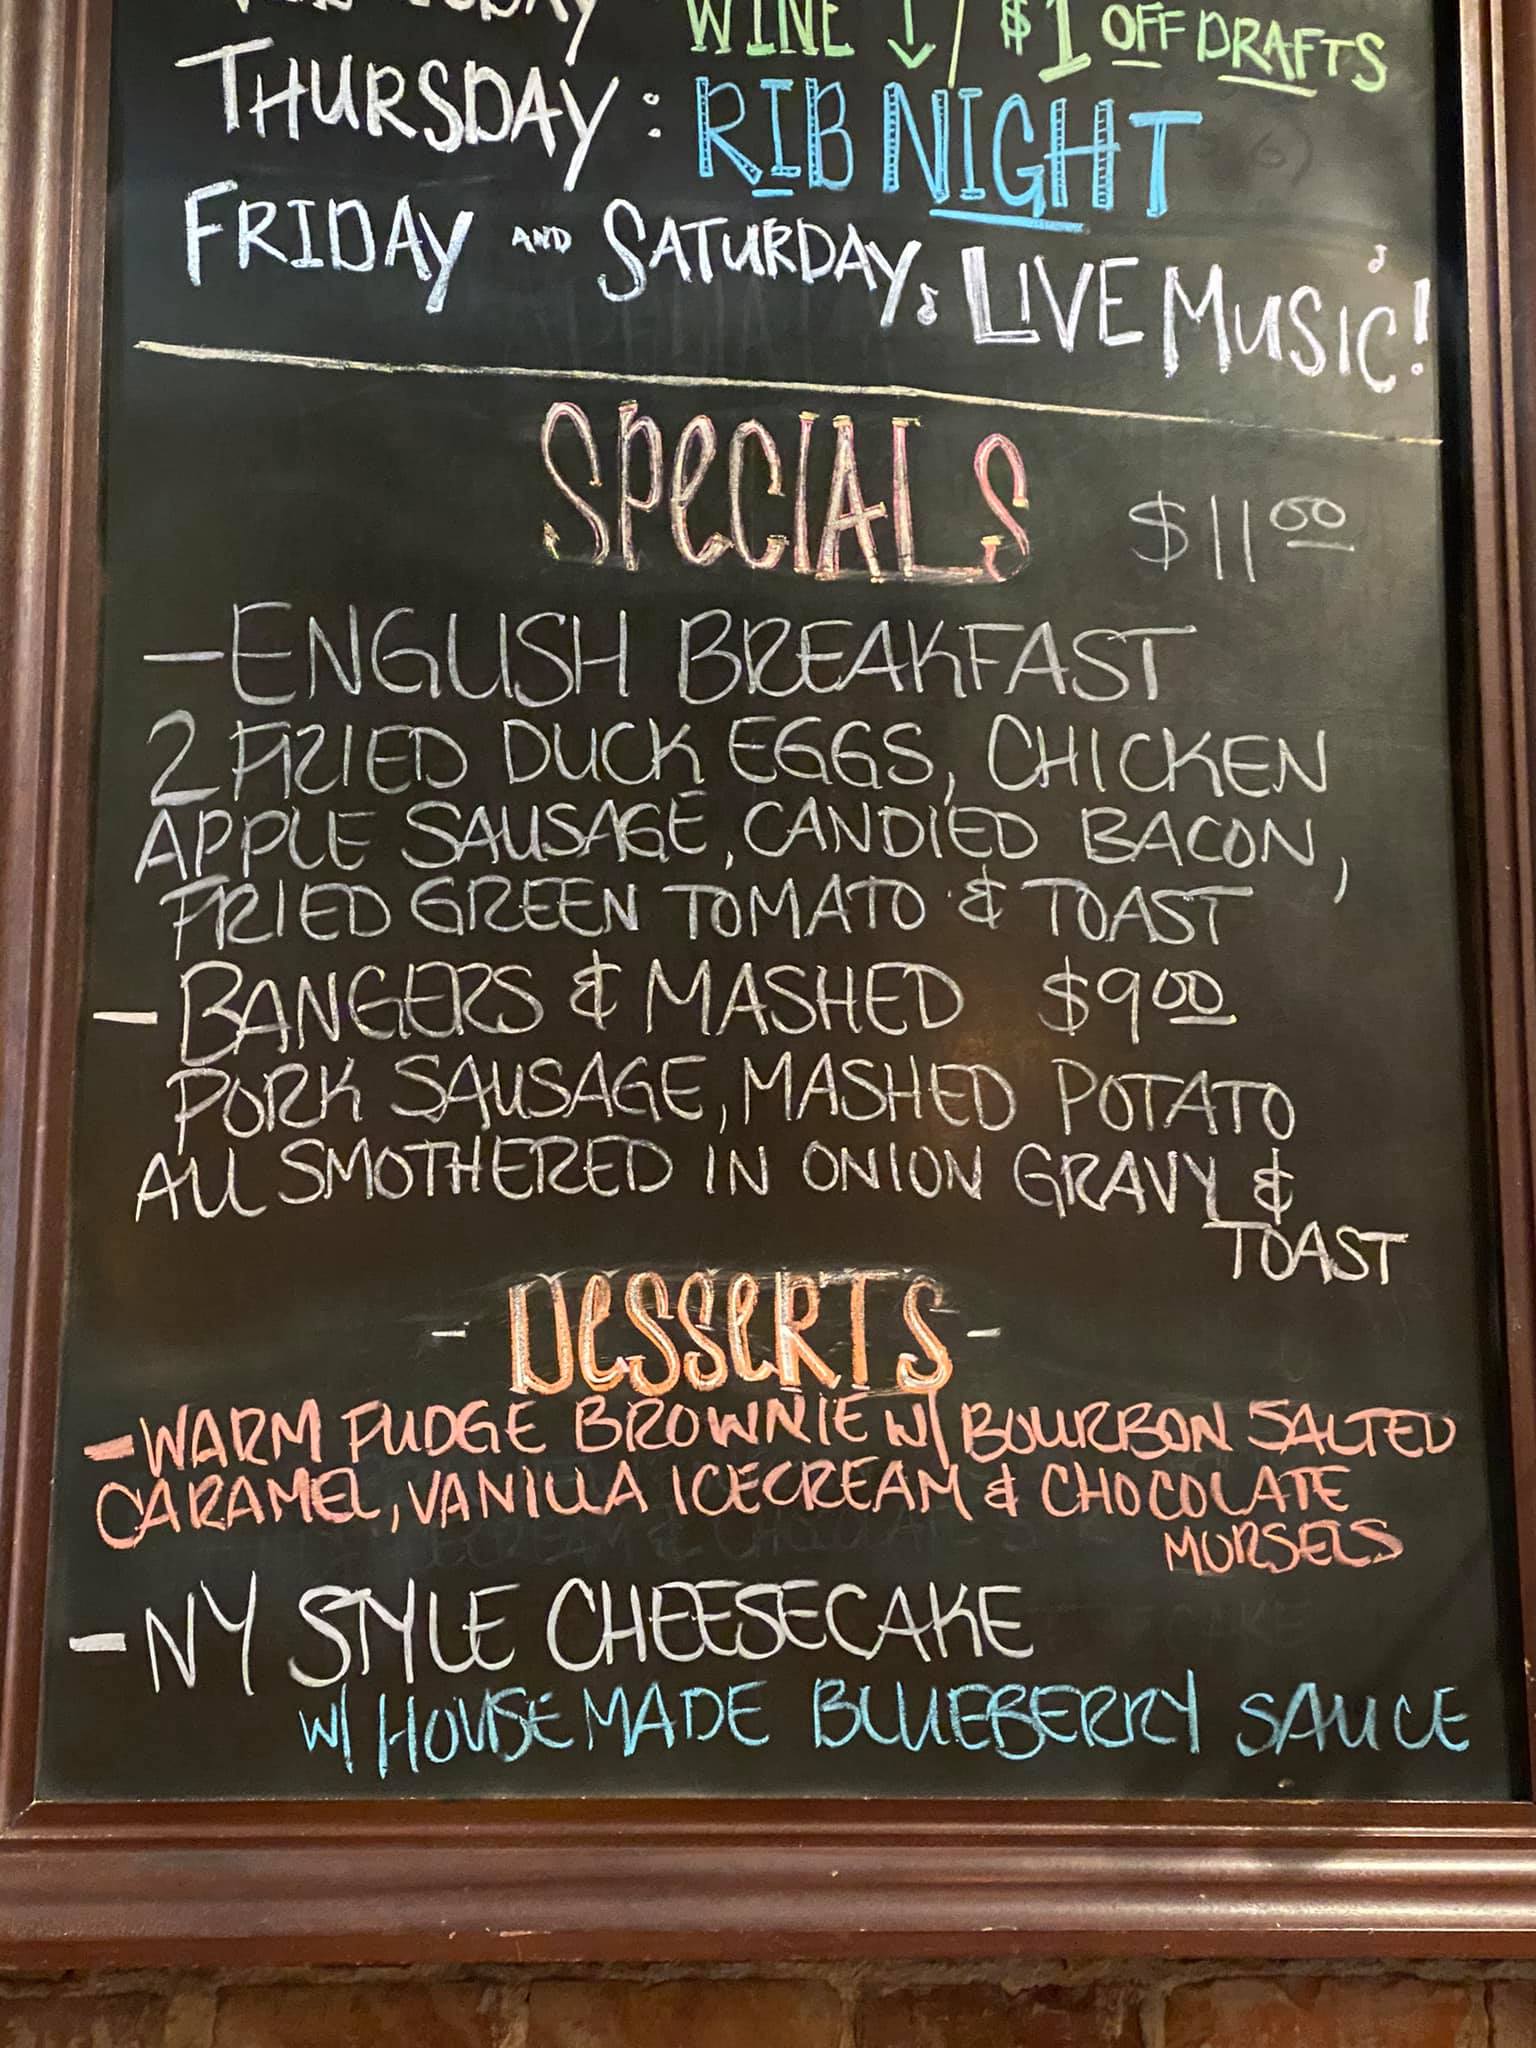 WINE ↓ / $1 OFF DRAFTS
THURSDAY: RIB NIGHT
FRIDAY AND SATURDAY: LIVE MUSIC!
SPECIALS $11.00
- ENGLISH BREAKFAST
2 FRIED DUCK EGGS, CHICKEN
APPLE SAUSAGE, CANDIED BACON,
FRIED GREEN TOMATO & TOAST
- BANGERS & MASHED $9.00
PORK SAUSAGE, MASHED POTATO
ALL SMOTHERED IN ONION GRAVY &
TOAST
- DESSERTS -
- WARM FUDGE BROWNIE W/ BOURBON SALTED
CARAMEL, VANILLA ICECREAM & CHOCOLATE
MORSELS
- NY STYLE CHEESECAKE
W/ HOUSEMADE BLUEBERRY SAUCE